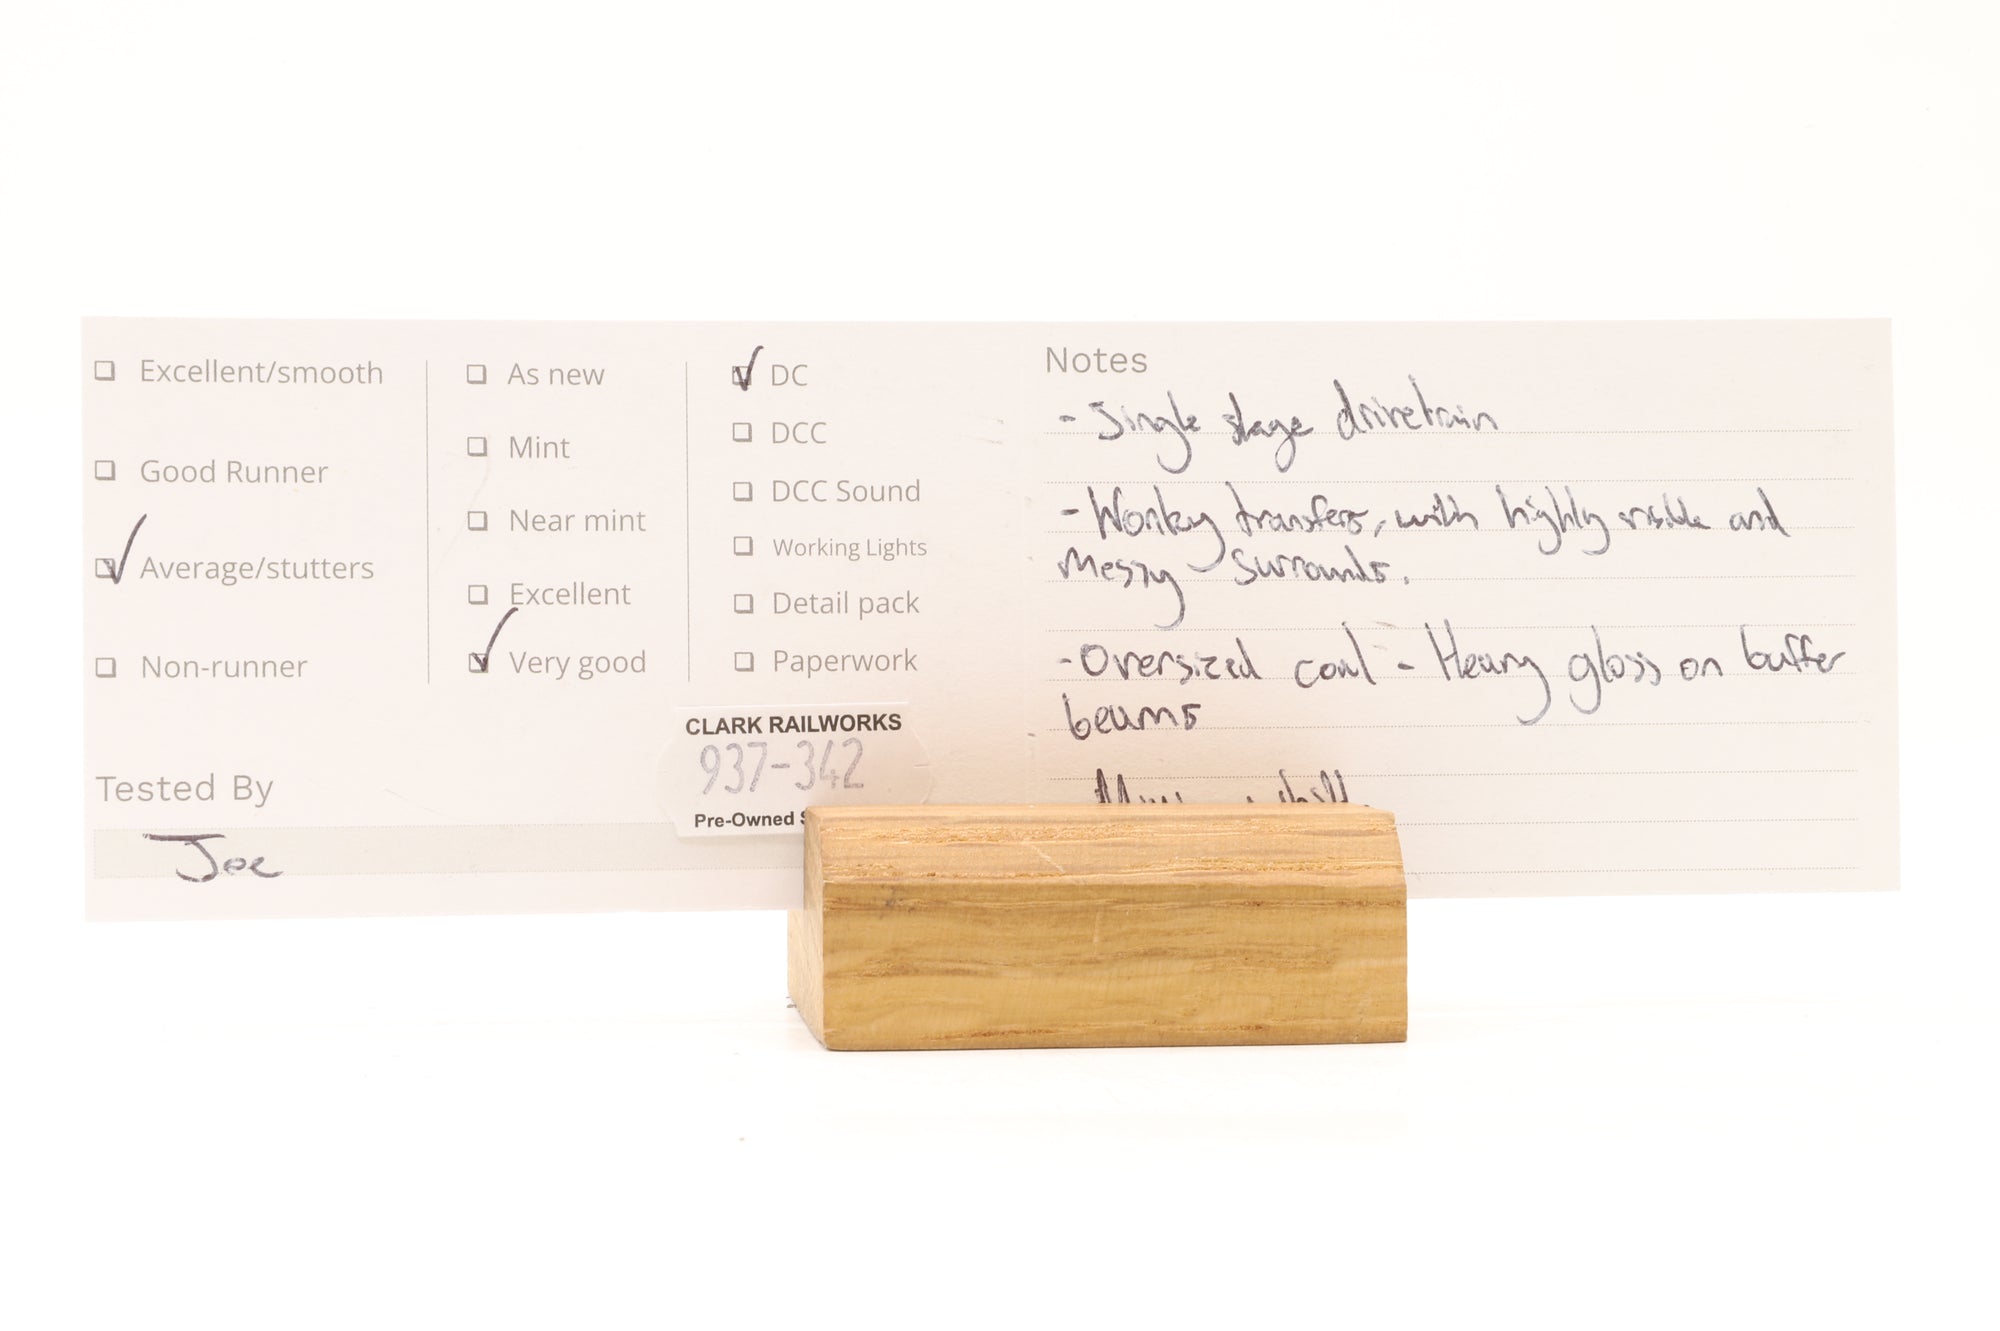 Excellent/smooth
Good Runner
Average/stutters
Non-runner
As new
Mint
Near mint
Excellent
Very good
DC
DCC
DCC Sound
Working Lights
Detail pack
Paperwork
CLARK RAILWORKS
937-342
Pre-Owned
Tested By
Joe
Notes
- Single stage drivetrain
- Wonky transfers, with highly visible and
messy surrounds.
- Oversized coal - Heavy gloss on buffer
beams